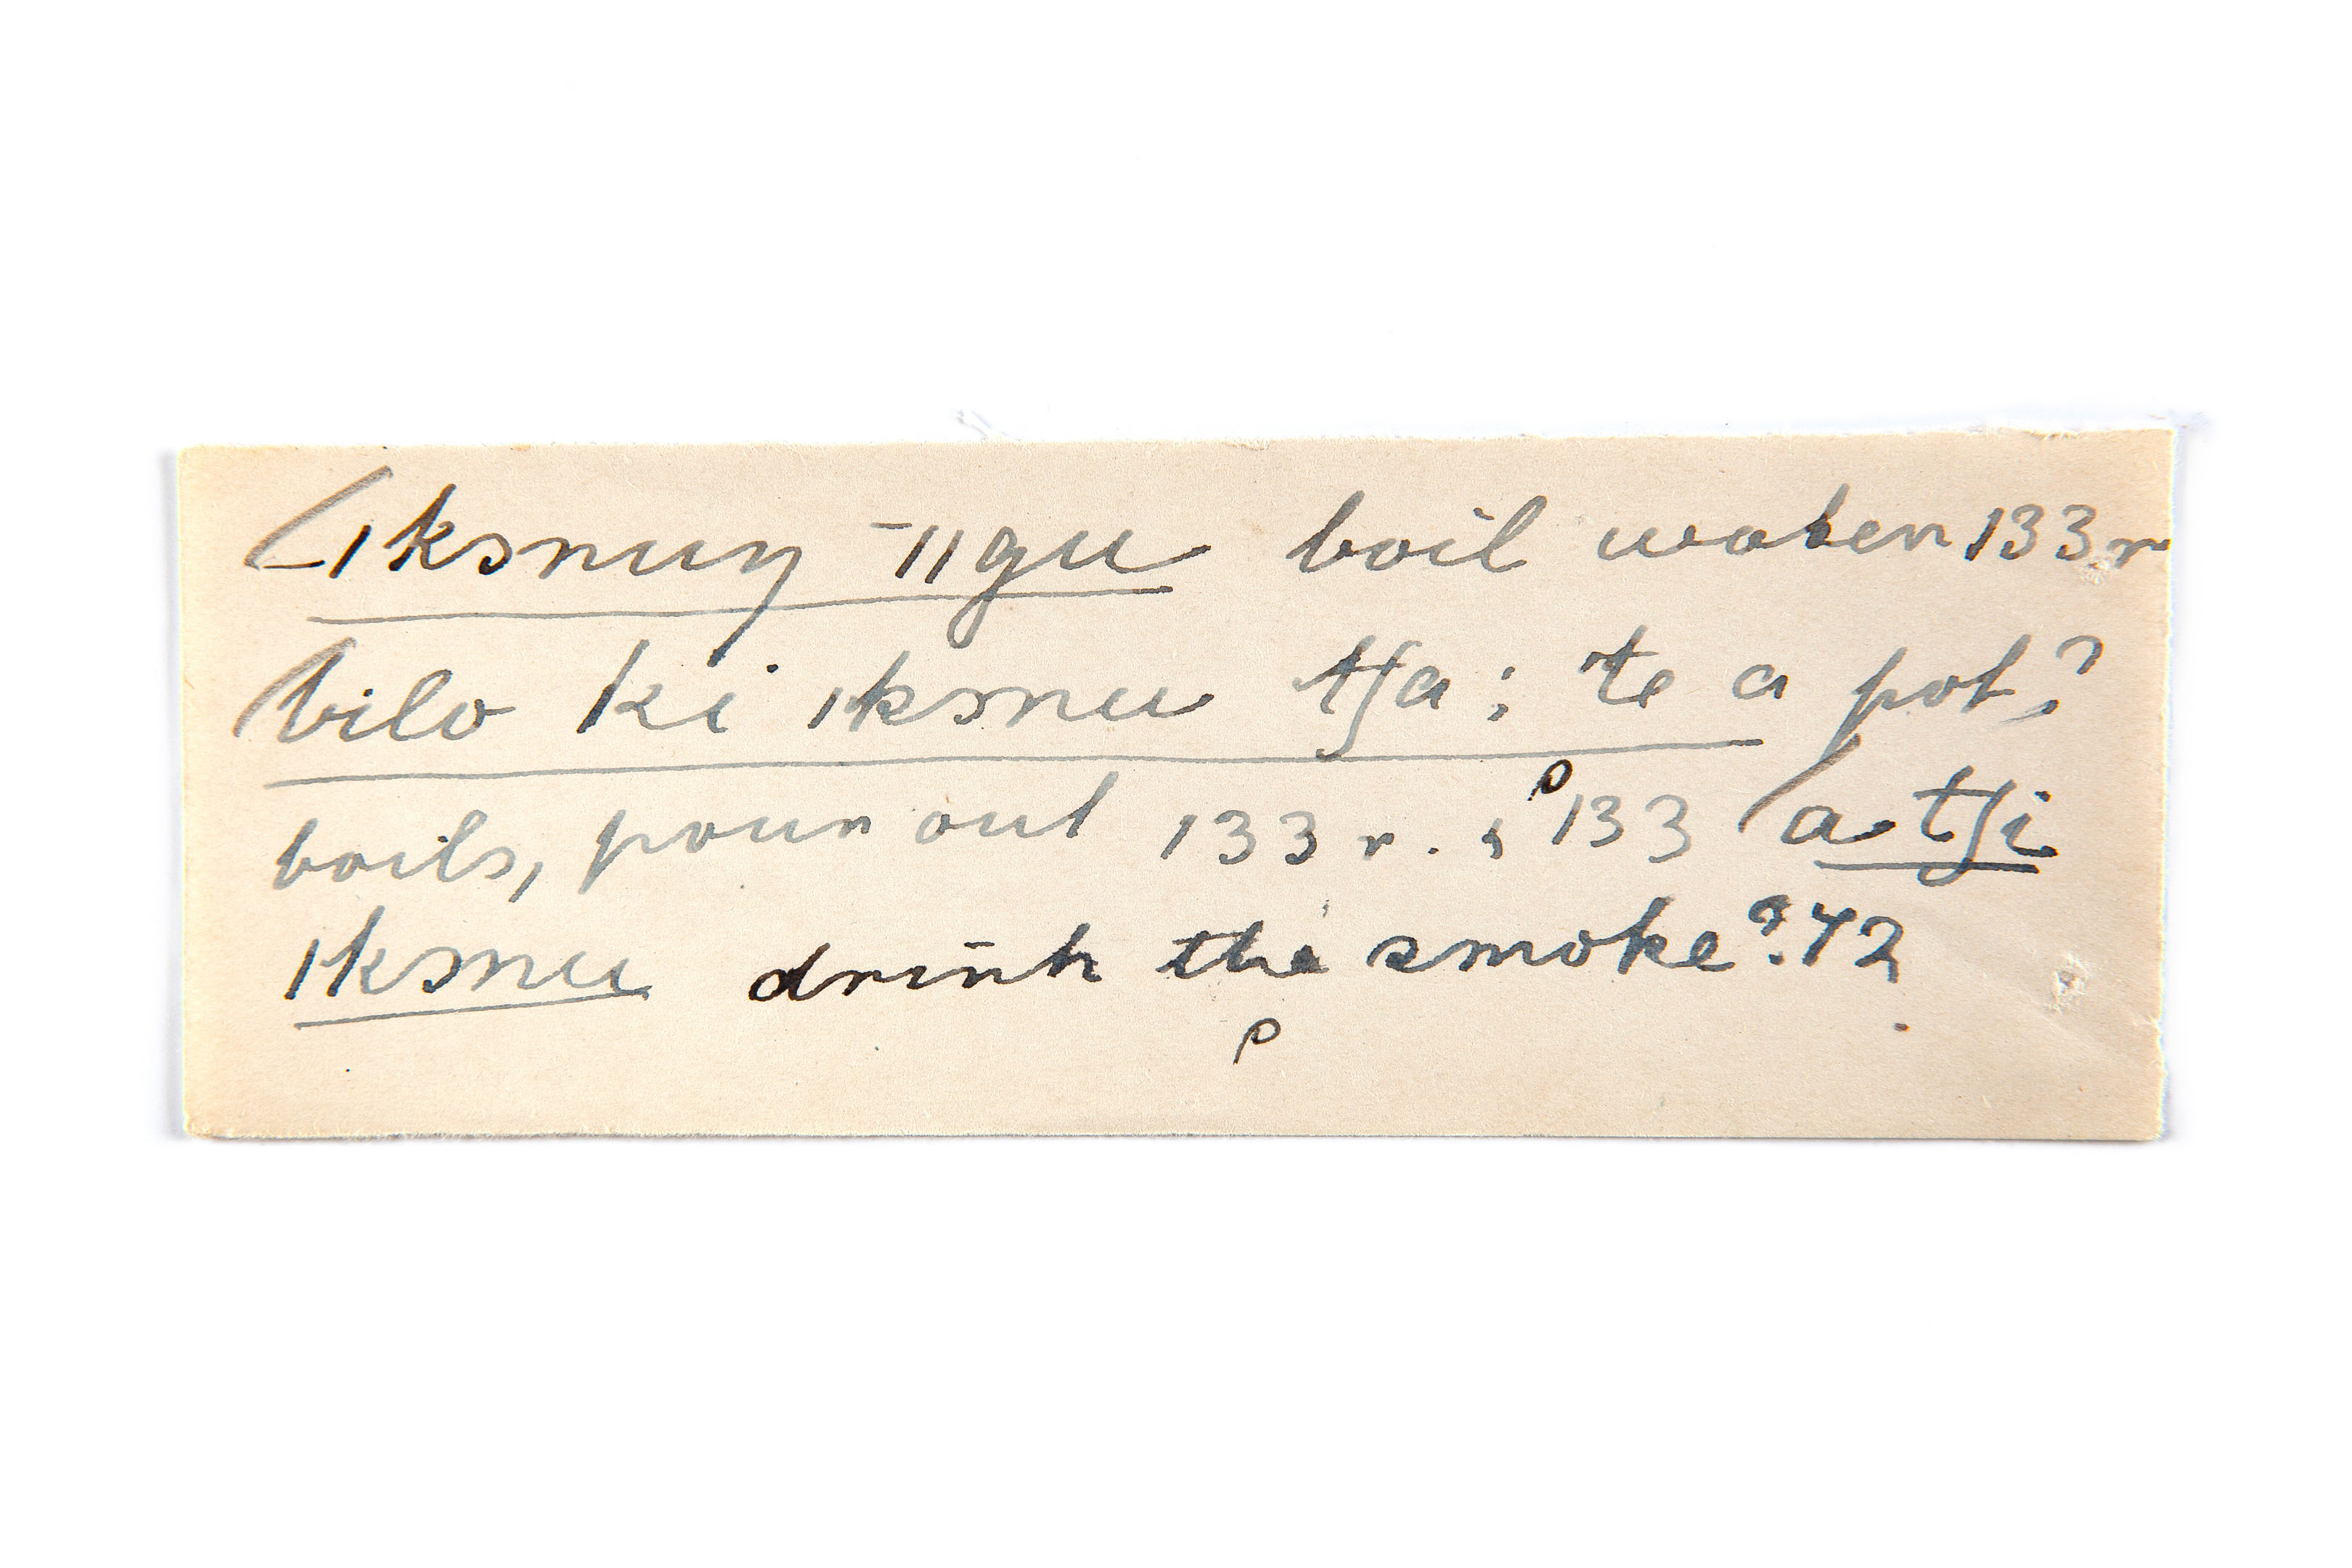 ıksnuŋ -ııgu boil water 133 r
bilo ki ıksnu tʃa ; te a pot?
boils, pour out 133 r. ; 133 a tʃi
ıksnu drink the smoke? 72